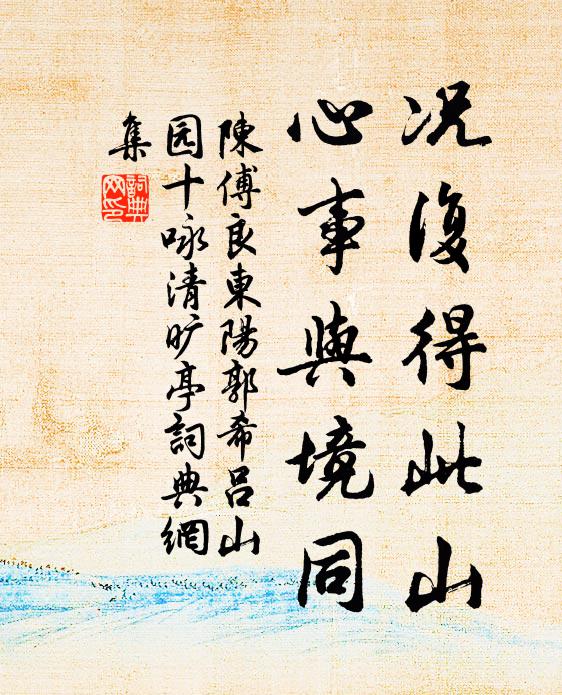 况復得此山
心事與境同
陳傅良東陽郭希呂山
园十咏清旷亭詞典網
集
詞典
网印